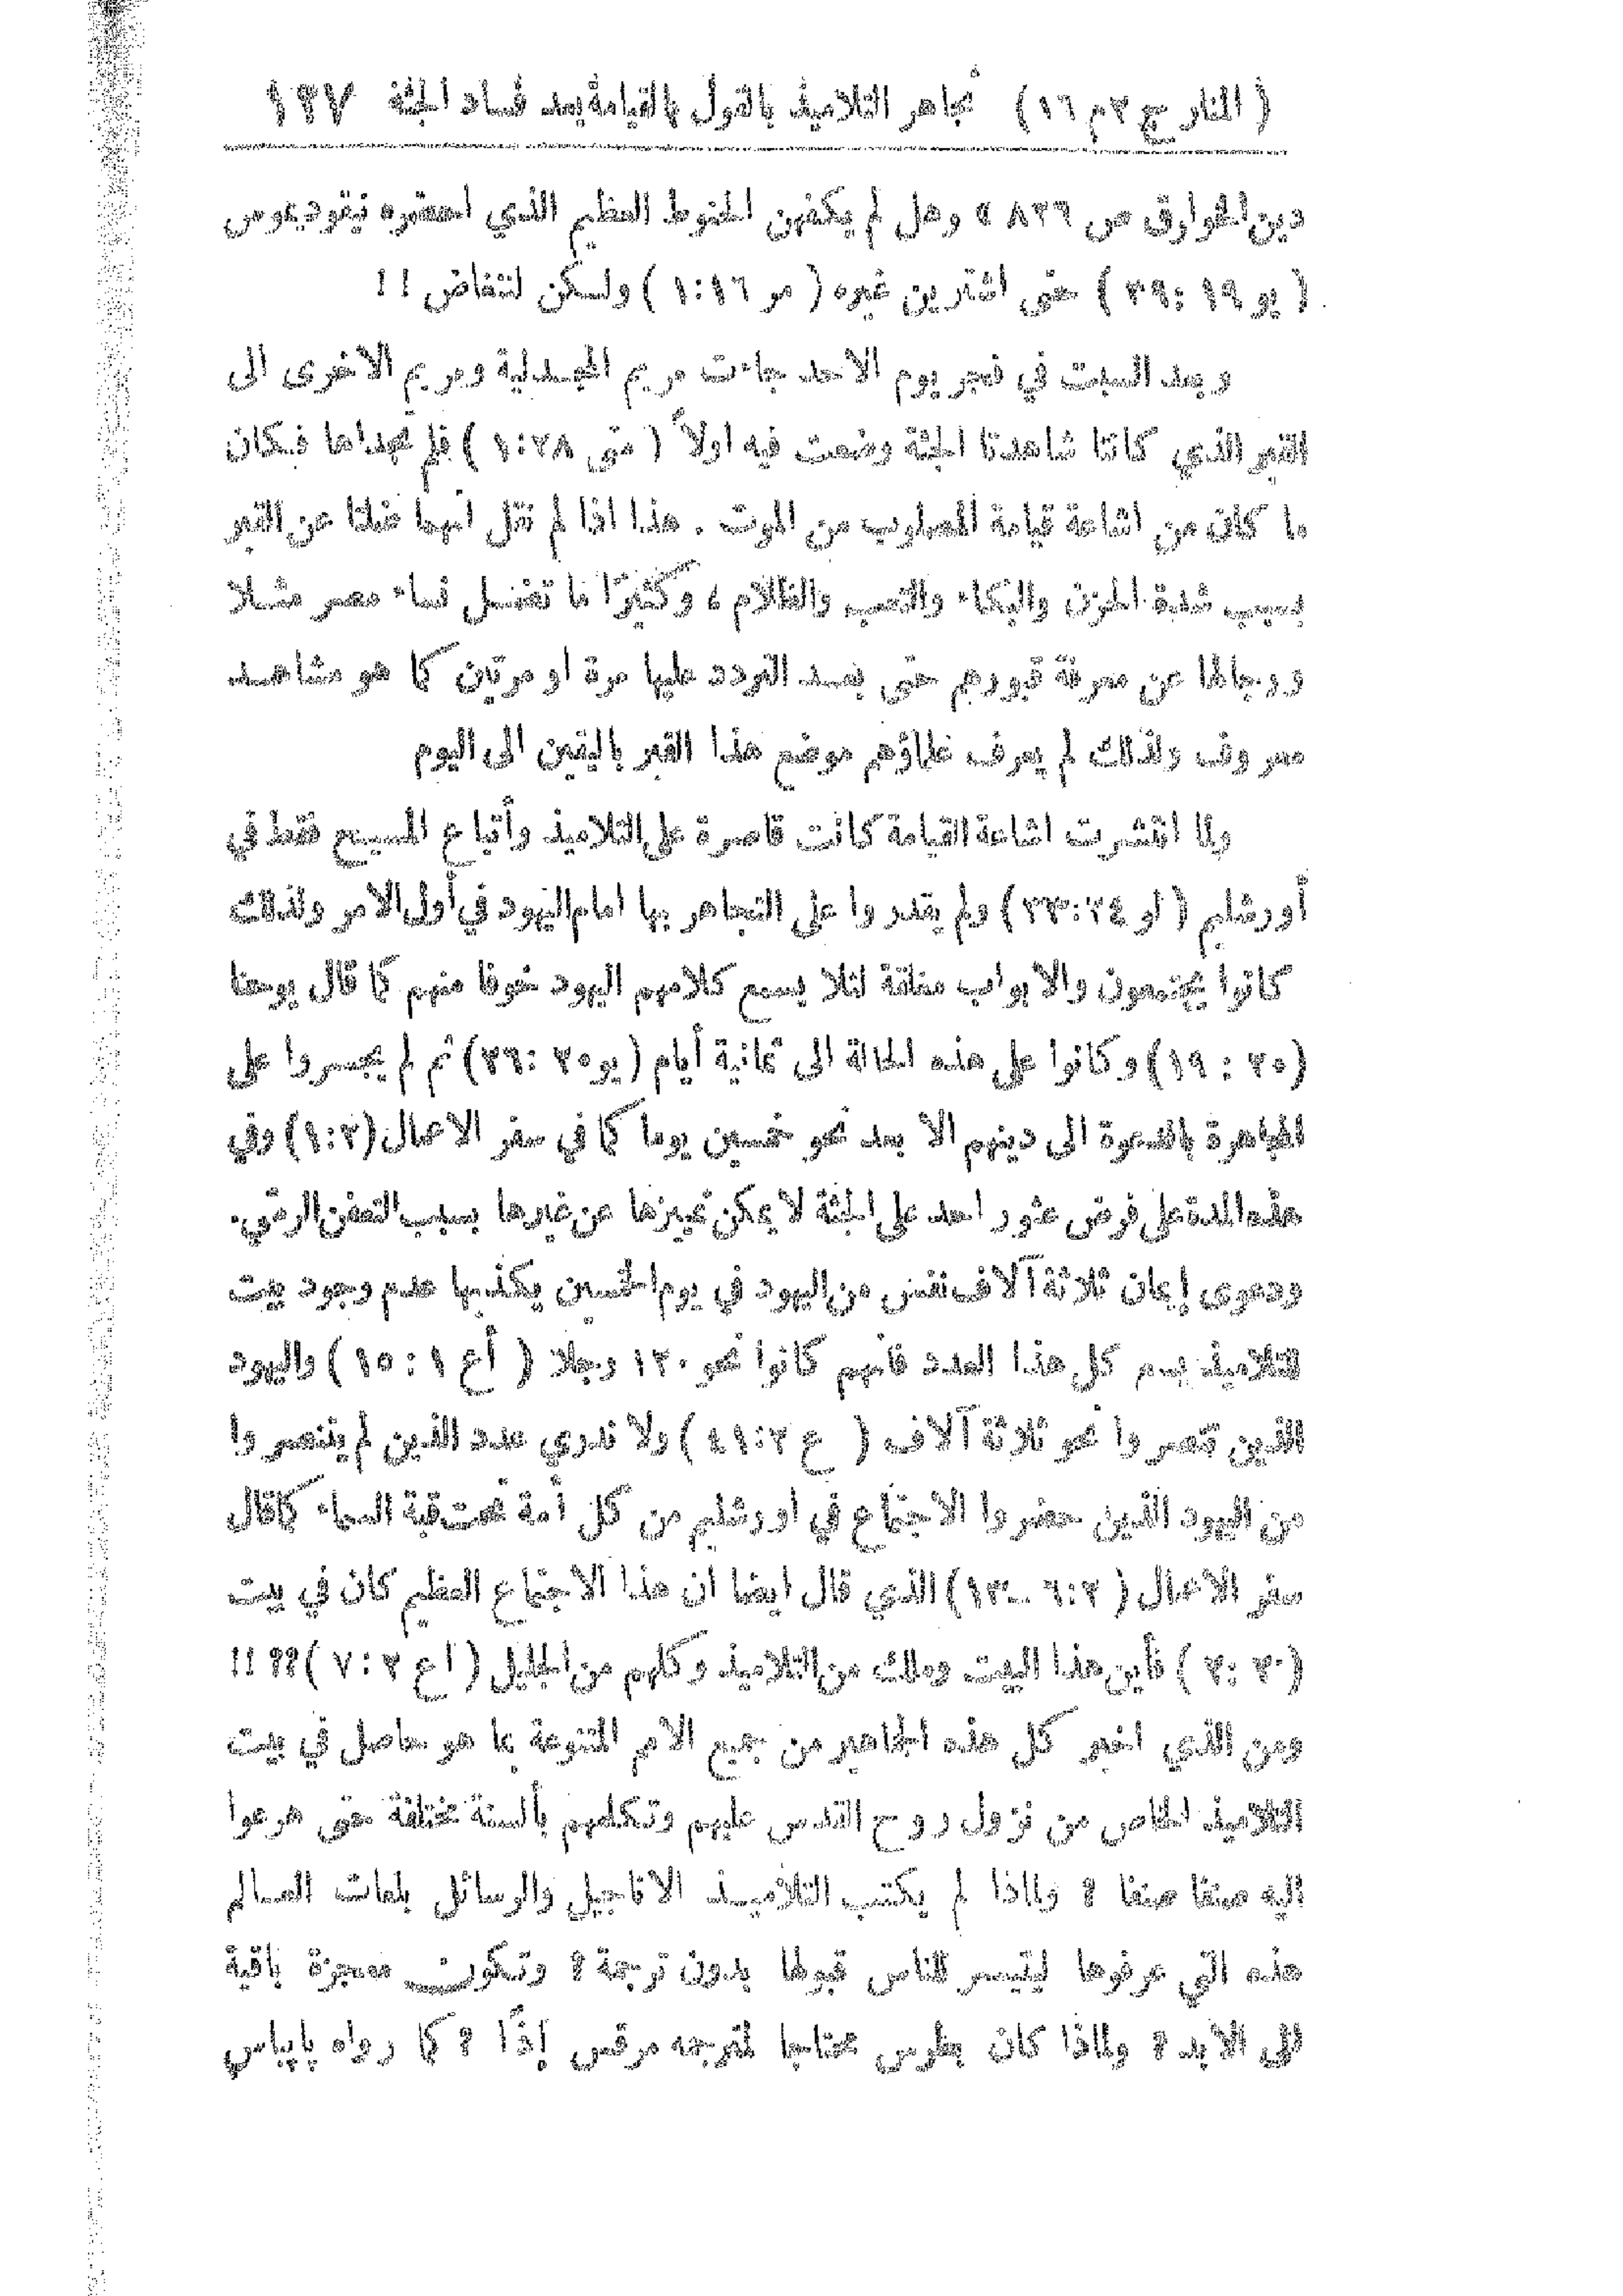 ( المنار ج ٢ م ١٦ ) تجاهر التلاميذ بالقول بالقيامة بعد فساد الجثة ١٢٧
دين الخوارق ص ٨٢٦ » وهل لم يكفهن الحنوط العظيم الذي احضره نيقوديموس
( يو ١٩ : ٣٩ ) حتى اشترين غيره ( مر ١٦ : ١ ) ولكن لنتغاض ! !
وبعد السبت في فجر يوم الاحد جاءت مريم المجدلية ومريم الاخرى الى
القبر الذي كانتا شاهدتا الجثة وضعت فيه اولاً ( متى ٢٨ : ١ ) فلم تجداها فكان
ما كان من اشاعة قيامة المصلوب من الموت . هذا اذا لم نقل انهما ضلتا عن القبر
بسبب شدة الحزن والبكاء والتعب والظلام ، وكثيرًا ما تضل نساء مصر مثلا
ورجالها عن معرفة قبورهم حتى بعد التردد عليها مرة او مرتين كما هو مشاهد
معروف ولذلك لم يعرف علماؤهم موضع هذا القبر باليقين الى اليوم
ولما انتشرت اشاعة القيامة كانت قاصرة على التلاميذ وأتباع المسيح فقط في
أورشليم ( لو ٢٤ : ٣٣ ) ولم يقدروا على التجاهر بها امام اليهود في أول الامر ولذلك
كانوا يجتمعون والابواب مغلقة لئلا يسمع كلامهم اليهود خوفا منهم كما قال يوحنا
( ٢٠ : ١٩ ) وكانوا على هذه الحالة الى ثمانية أيام ( يو ٢٠ : ٢٦ ) ثم لم يجسروا على
المجاهرة بالدعوة الى دينهم الا بعد نحو خمسين يوما كما في سفر الاعمال ( ٢ : ١ ) وفي
هذه المدة على فرض عثور احد على الجثة لا يمكن تمييزها عن غيرها بسبب التعفن الرمي .
ودعوى إيمان ثلاثة آلاف نفس من اليهود في يوم الخمسين يكذبها عدم وجود بيت
للتلاميذ يسع كل هذا العدد فانهم كانوا نحو ١٢٠ رجلا ( أع ١ : ١٥ ) واليهود
الذين تنصروا نحو ثلاثة آلاف ( ع ٢ : ٤١ ) ولا ندري عدد الذين لم يتنصروا
من اليهود الذين حضروا الاجتماع في اورشليم من كل أمة تحت قبة السماء كما قال
سفر الاعمال ( ٢ : ٦ - ١٣ ) الذي قال ايضا ان هذا الاجتماع العظيم كان في بيت
( ٢ : ٢ ) فأين هذا البيت وملك من التلاميذ وكلهم من الجليل ( اع ٢ : ٧ ) ؟؟ !!
ومن الذي اخبر كل هذه الجماهير من جميع الامم المتنوعة بما هو حاصل في بيت
التلاميذ الخاص من نزول روح القدس عليهم وتكلمهم بألسنة مختلفة حتى هرعوا
اليه صفا صفا ؟ ولماذا لم يكتب التلاميذ الاناجيل والرسائل بلغات العالم
هذه التي عرفوها ليتيسر للناس قبولها بدون ترجمة ؟ وتكون معجزة باقية
الى الابد ؟ ولماذا كان بطرس محتاجا لمترجمه مرقس إذًا ؟ كما رواه پاپياس